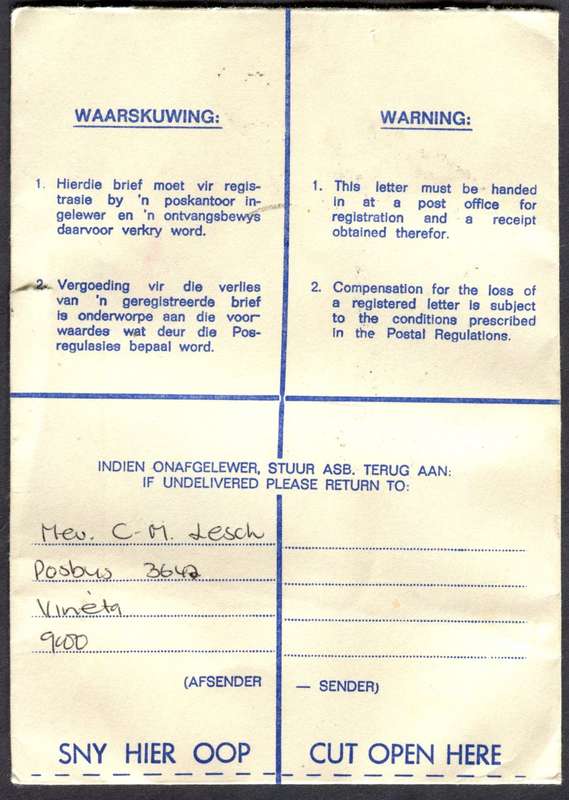 WAARSKUWING:
1. Hierdie brief moet vir regis-
trasie by 'n poskantoor in-
gelewer en 'n ontvangsbewys
daarvoor verkry word.
2. Vergoeding vir die verlies
van 'n geregistreerde brief
is onderworpe aan die voor-
waardes wat deur die Pos-
regulasies bepaal word.
WARNING:
1. This letter must be handed
in at a post office for
registration and a receipt
obtained therefor.
2. Compensation for the loss of
a registered letter is subject
to the conditions prescribed
in the Postal Regulations.
INDIEN ONAFGELEWER, STUUR ASB. TERUG AAN:
IF UNDELIVERED PLEASE RETURN TO:
Mev. C-M. Lesch
Posbus 3642
Vinèta
9400
(AFSENDER — SENDER)
SNY HIER OOP CUT OPEN HERE